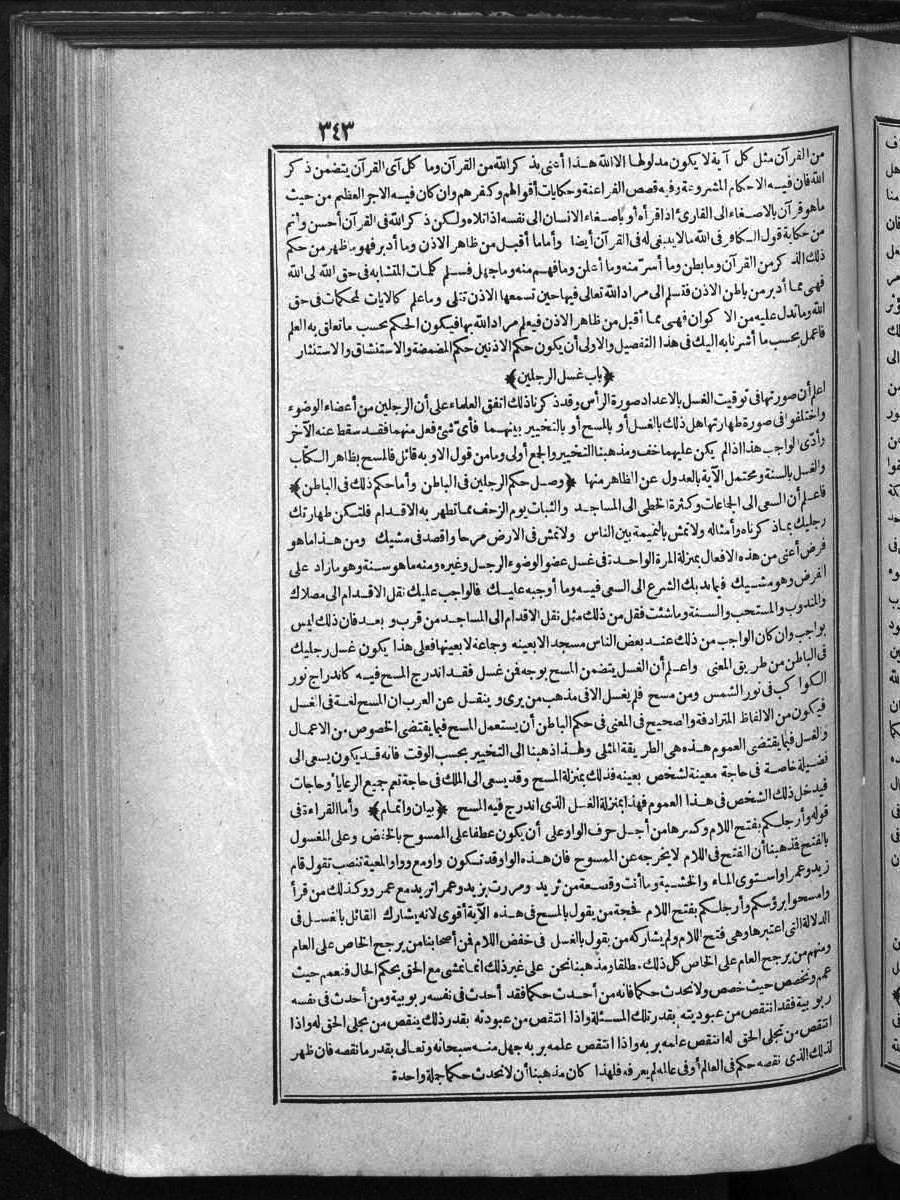 ٣٤٣
من القرآن مثل كل آية لا يكون مدلولها الا الله هذا أعنى بذكر الله من القرآن وما كل آى القرآن يتضمن ذكر
الله فان فيه الاحكام المشروعة وفيه قصص الفراعنة وحكايات أقوالهم وكفرهم وان كان فيه الاجر العظيم من حيث
ماهو قرآن بالاصغاء الى القارئ اذا قرأه أو باصغاء الانسان الى نفسه اذا تلاه ولكن ذكر الله فى القرآن أحسن وأتم
من حكاية قول الكافر فى الله مالا ينبغى له فى القرآن أيضا وأما ما أقبل من ظاهر الاذن وما أدبر فهو ما ظهر من حكم
ذلك الذكر من القرآن وما بطن وما أسر منه وما أعلن وما فهم منه وما جهل فسلم كلمات المتشابه فى حق الله الى الله
فهى مما أدبر من باطن الاذن فتسلم الى مراد الله تعالى فيها حين تسمعها الاذن تتلى وما علم كالايات المحكمات فى حق
الله وما تدل عليه من الاكوان فهى مما أقبل من ظاهر الاذن فيعلم مراد الله بها فيكون الحكم بحسب ما تعلق به العلم
فاعمل بحسب ما أشرنا به اليك فى هذا التفصيل والاولى أن يكون حكم الاذنين حكم المضمضة والاستنشاق والاستنثار
﴿باب غسل الرجلين﴾
اعلم أن صورتها فى توقيت الغسل بالاعداد صورة الرأس وقد ذكرنا ذلك اتفق العلماء على أن الرجلين من أعضاء الوضوء
واختلفوا فى صورة طهارتها هل ذلك بالغسل أو بالمسح أو بالتخيير بينهما فأىّ شئ فعل منهما فقد سقط عنه الآخر
وأدّى الواجب هذا اذا لم يكن عليهما خف ومذهبنا التخيير والجمع أولى وما من قول الا وبه قائل فالمسح بظاهر الكتاب
والغسل بالسنة ومحتمل الآية بالعدول عن الظاهر منها ﴿وصل حكم الرجلين فى الباطن وأما حكم ذلك فى الباطن﴾
فاعلم أن السعى الى الجماعات وكثرة الخطى الى المساجد والثبات يوم الزحف مما تطهر به الاقدام فلتكن طهارتك
رجليك بما ذكرناه وأمثاله ولا تمش بالنميمة بين الناس ولا تمش فى الارض مرحا واقصد فى مشيك ومن هذا ما هو
فرض أعنى من هذه الافعال بمنزلة المرة الواحدة فى غسل عضو الوضوء الرجل وغيره ومنه ما هو سنة وهو ما زاد على
الفرض وهو مشيك فيما ندبك الشرع الى السعى فيه وما أوجبه عليك فالواجب عليك نقل الاقدام الى مصلاك
والمندوب والمستحب والسنة وما شئت فقل من ذلك مثل نقل الاقدام الى المساجد من قرب وبعد فان ذلك ليس
بواجب وان كان الواجب من ذلك عند بعض الناس مسجد الا بعينه وجماعة لا بعينها فعلى هذا يكون غسل رجليك
فى الباطن من طريق المعنى واعلم أن الغسل يتضمن المسح بوجه فمن غسل فقد اندرج المسح فيه كاندراج نور
الكواكب فى نور الشمس ومن مسح فلم يغسل الا فى مذهب من يرى وينقل عن العرب ان المسح لغة فى الغسل
فيكون من الالفاظ المترادفة والصحيح فى المعنى فى حكم الباطن أن يستعمل المسح فيما يقتضى الخصوص من الاعمال
والغسل فيما يقتضى العموم هذه هى الطريقة المثلى ولهذا ذهبنا الى التخيير بحسب الوقت فانه قد يكون يسعى الى
فضيلة خاصة فى حاجة معينة لشخص بعينه فذلك بمنزلة المسح وقد يسعى الى الملك فى حاجة تعم جميع الرعايا أو حاجات
فيدخل ذلك الشخص فى هذا العموم فهذا بمنزلة الغسل الذى اندرج فيه المسح ﴿بيان واتمام﴾ وأما القراءة فى
قوله وأرجلكم بفتح اللام وكسرها من أجل حرف الواو على أن يكون عطفا على الممسوح بالخفض وعلى المغسول
بالفتح فذهبنا أن الفتح فى اللام لا يخرجه عن الممسوح فان هذه الواو قد تكون واو مع وواو المعية تنصب تقول قام
زيد وعمرا واستوى الماء والخشبة وما أنت وقصعة من ثريد ومررت بزيد وعمرا تريد مع عمرو وكذلك من قرأ
وامسحوا برؤسكم وأرجلكم بفتح اللام فحجة من يقول بالمسح فى هذه الآية أقوى لانه يشارك القائل بالغسل فى
الدلالة التى اعتبرها وهى فتح اللام ولم يشاركه من يقول بالغسل فى خفض اللام فمن أصحابنا من يرجح الخاص على العام
ومنهم من يرجح العام على الخاص كل ذلك مطلقا ومذهبنا نحن على غير ذلك انما نمشى مع الحق بحكم الحال فنعمم حيث
عمم ونخصص حيث خصص ولا نحدث حكما فانه من أحدث حكما فقد أحدث فى نفسه ربوبية ومن أحدث فى نفسه
ربوبية فقد انتقص من عبوديته بقدر تلك المسئلة واذا انتقص من عبودته بقدر ذلك ينقص من تجلى الحق له واذا
انتقص من تجلى الحق له انتقص علمه بربه واذا انتقص علمه بربه جهل منه سبحانه وتعالى بقدر ما نقصه فان ظهر
لذلك الذى نقصه حكم فى العالم أو فى عالمه لم يعرفه فلهذا كان مذهبنا أن لا نحدث حكما جملة واحدة